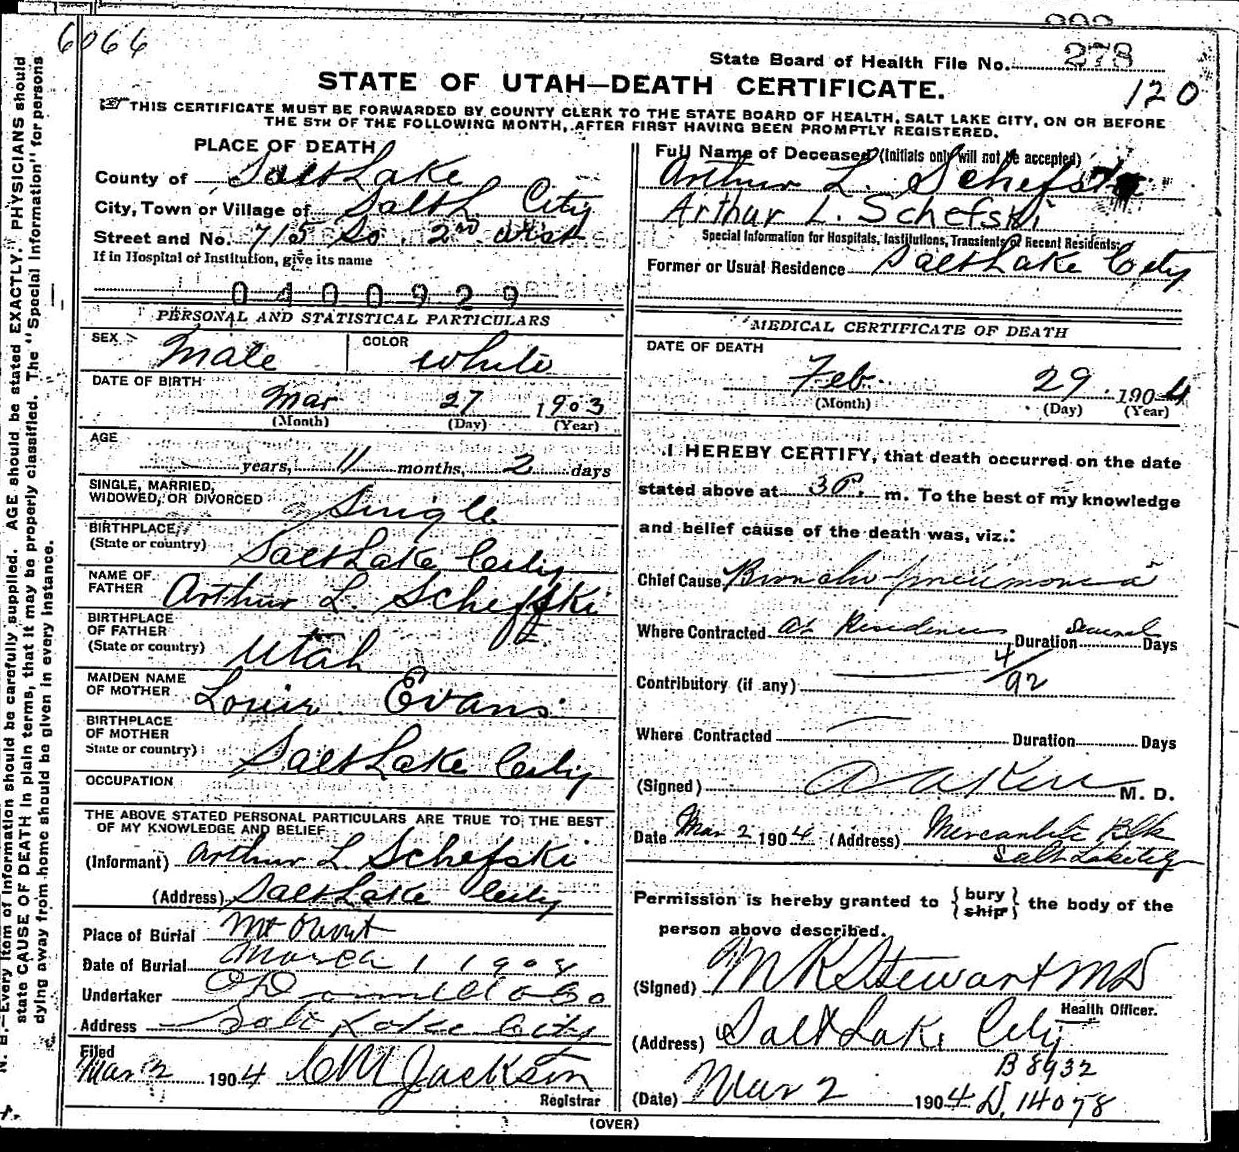 6066
State Board of Health File No. 278
STATE OF UTAH—DEATH CERTIFICATE.
120
THIS CERTIFICATE MUST BE FORWARDED BY COUNTY CLERK TO THE STATE BOARD OF HEALTH, SALT LAKE CITY, ON OR BEFORE
THE 5TH OF THE FOLLOWING MONTH, AFTER FIRST HAVING BEEN PROMPTLY REGISTERED.
N. B.—Every item of information should be carefully supplied. AGE should be stated EXACTLY. PHYSICIANS should
state CAUSE OF DEATH in plain terms, that it may be properly classified. The "Special Information" for persons
dying away from home should be given in every instance.
PLACE OF DEATH
County of Salt Lake
City, Town or Village of Salt L City
Street and No. 715 So. 2nd West
If in Hospital of Institution, give its name
0400929
PERSONAL AND STATISTICAL PARTICULARS
SEX Male COLOR White
DATE OF BIRTH
Mar 27 1903
(Month) (Day) (Year)
AGE
years, 11 months, 2 days
SINGLE, MARRIED,
WIDOWED, OR DIVORCED Single
BIRTHPLACE
(State or country) Salt Lake City
NAME OF
FATHER Arthur L. Schefski
BIRTHPLACE
OF FATHER
(State or country) Utah
MAIDEN NAME
OF MOTHER Evans
BIRTHPLACE
OF MOTHER
State or country) Salt Lake City
OCCUPATION
THE ABOVE STATED PERSONAL PARTICULARS ARE TRUE TO THE BEST
OF MY KNOWLEDGE AND BELIEF
(Informant) Arthur L Schefski
(Address) Salt Lake City
Place of Burial Mt Olivet
Date of Burial March 1 1904
Undertaker
Address Salt Lake City
Filed
Mar 2 1904 C M Jackson
Registrar
Full Name of Deceased (Initials only will not be accepted)
Arthur L. Schefski
Arthur L. Schefski
Special Information for Hospitals, Institutions, Transients or Recent Residents:
Former or Usual Residence Salt Lake City
MEDICAL CERTIFICATE OF DEATH
DATE OF DEATH
Feb. 29 1904
(Month) (Day) (Year)
I HEREBY CERTIFY, that death occurred on the date
stated above at 3 P. m. To the best of my knowledge
and belief cause of the death was, viz.:
Chief Cause Broncho-pneumonia
Where Contracted at Residence Duration Several Days
4/92
Contributory (if any)
Where Contracted Duration Days
(Signed) M. D.
Date Mar 2 1904 (Address) Mercantile Blk
Salt Lake City
Permission is hereby granted to { bury ship } the body of the
person above described.
(Signed) M R Stewart MD
Health Officer.
(Address) Salt Lake City
B 8932
(Date) Mar 2 1904 D. 14078
(OVER)